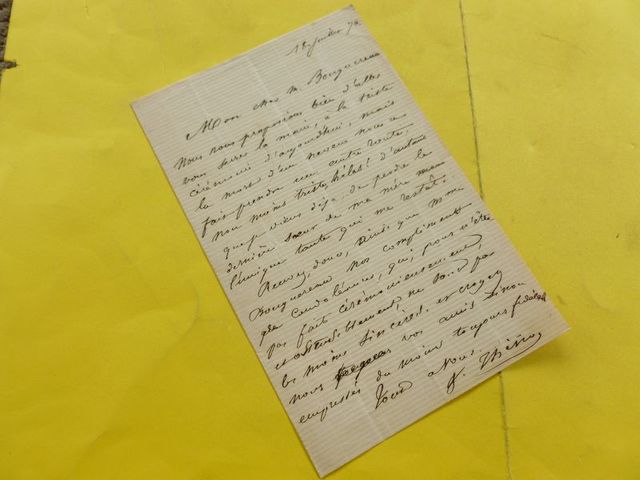 18 juillet 7
Mon cher M. Bouguereau
Nous nous proposions bien d'aller
vous serrer la main, à la triste
cérémonie d'aujourd'hui, mais
la mort d'un neveu nous a
fait prendre une autre route,
non moins triste, hélas! d'autant
que je viens déjà de perdre la
dernière sœur de ma mère
l'unique tante qui me restait.
Recevez, donc, ainsi que Mme
Bouguereau nos compliments
de condoléances, qui, pour n'être
pas faits cérémonieusement,
et ne sont pas
les moins sincères, et croyez
nous vos amis sinon
empressés du moins toujours fidèles
Tout à vous